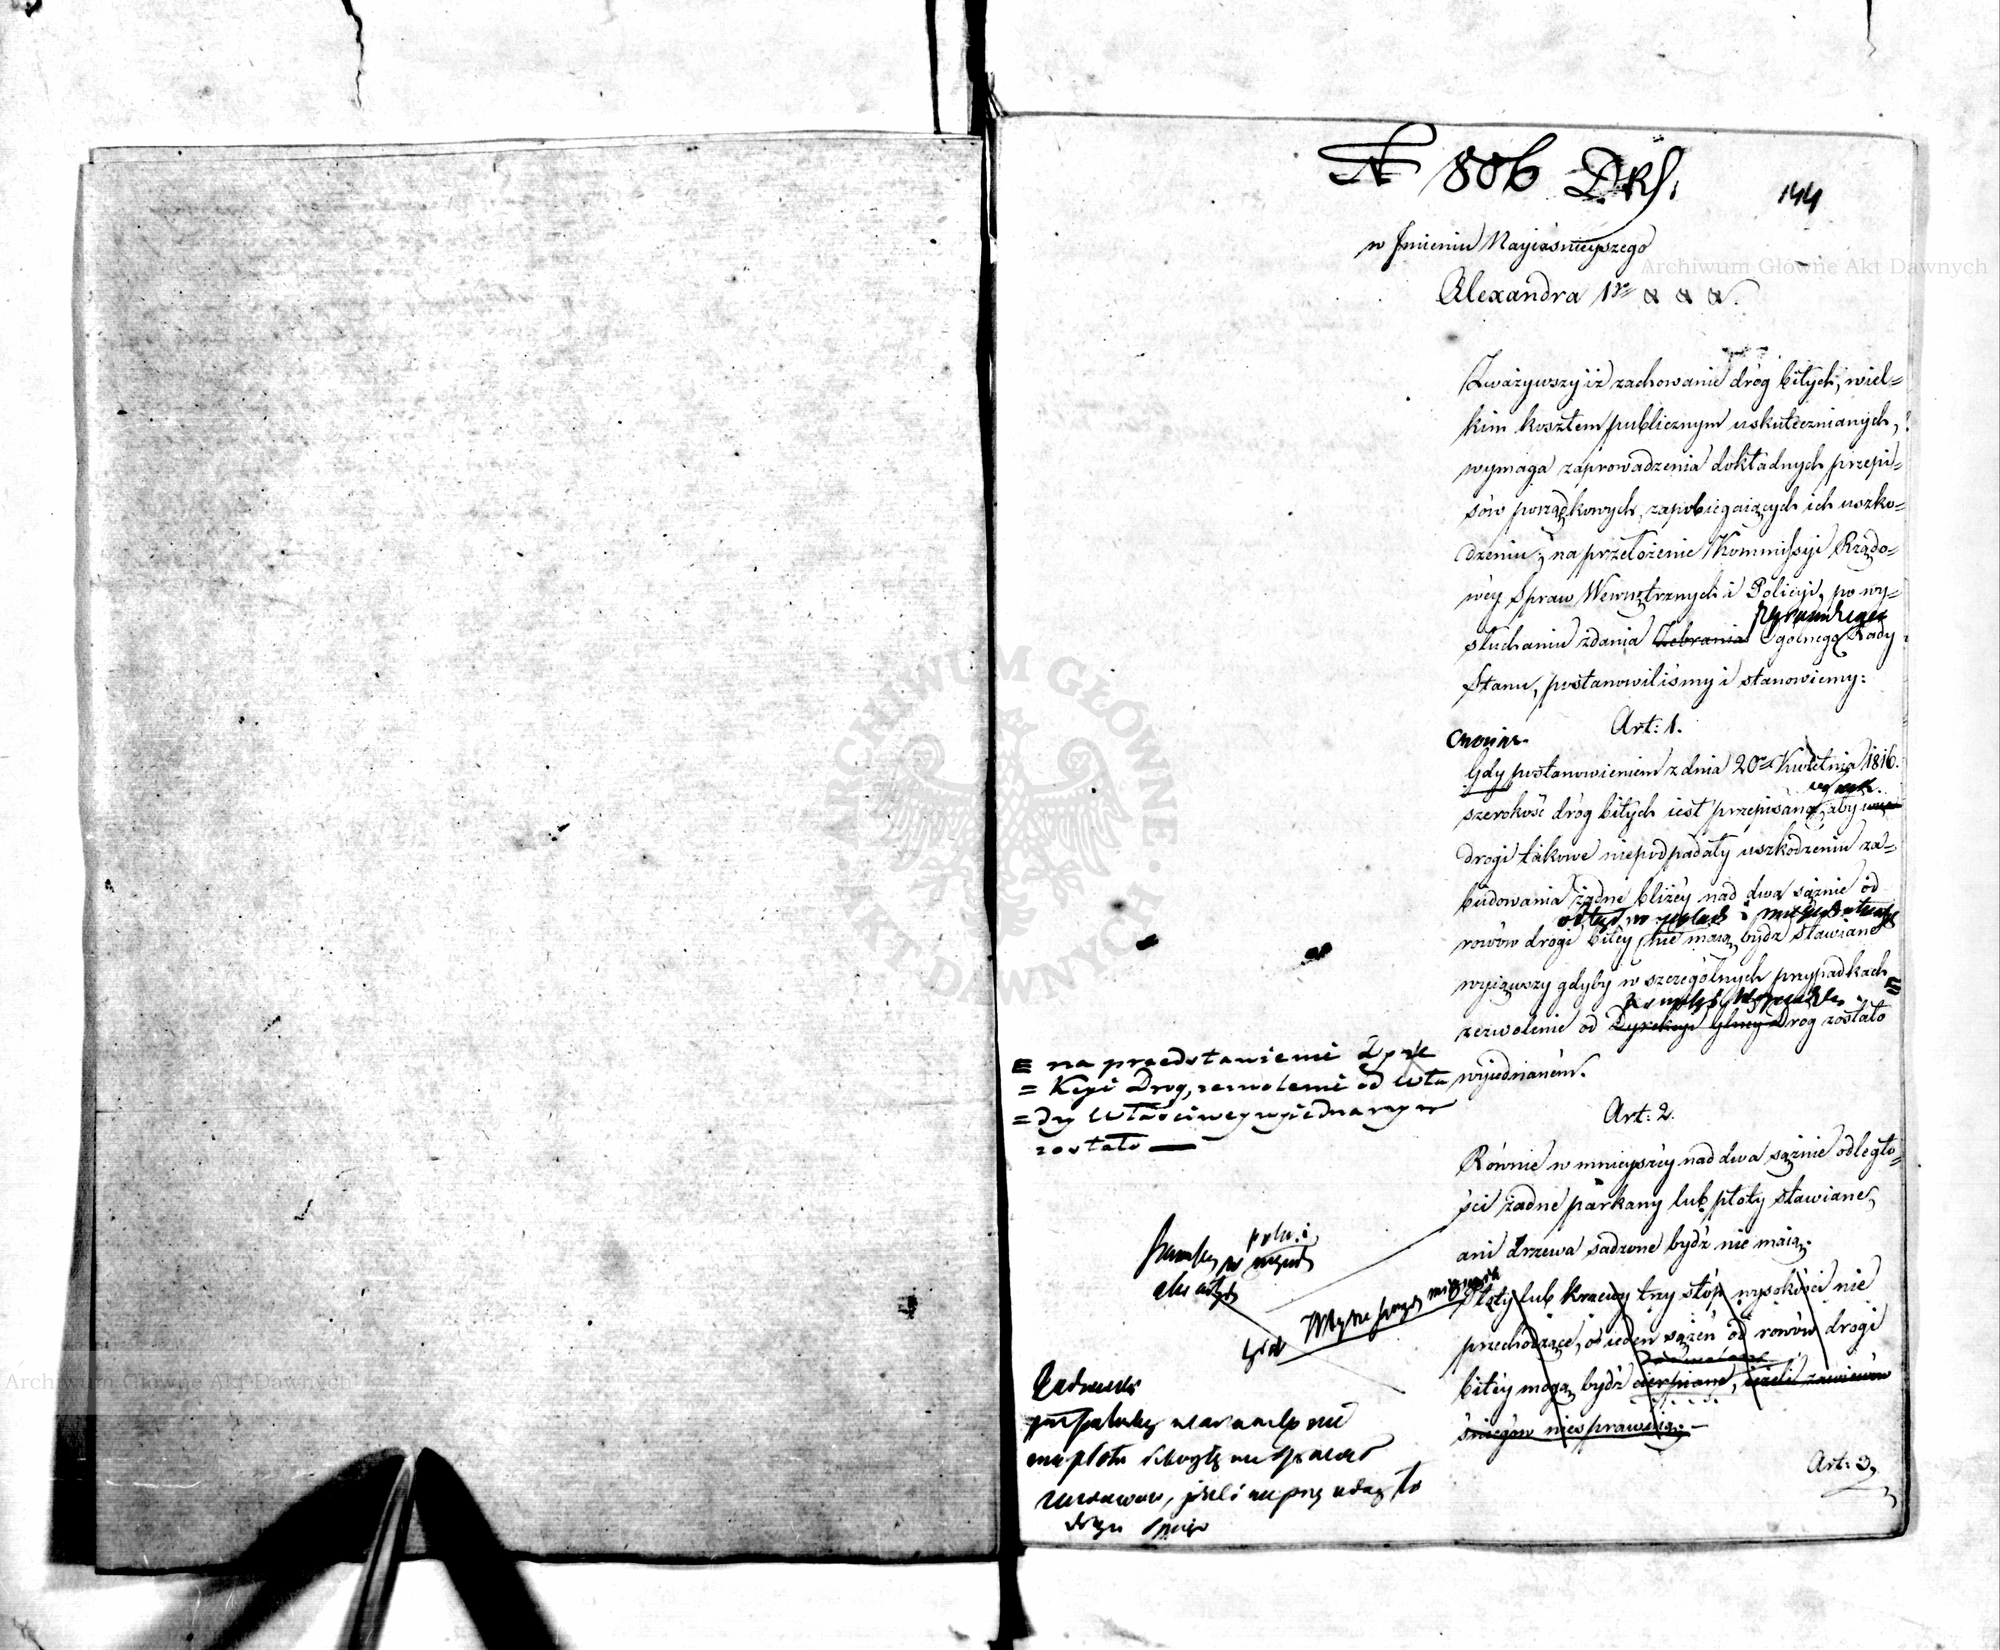 № 806 DRS.
144
w Jmieniu Nayiaśnieyszego
Alexandra 1go & & &.
Zważywszy iż zachowanie dróg bitych, wiel=
kim kosztem publicznym uskutecznianych,
wymaga zaprowadzenia dokładnych przepi=
sów porządkowych, zapobiegaiących ich uszko=
dzeniu; na przełożenie Kommissyi Rządo=
wéy Spraw Wewnętrznych i Policyi, po wy=
słuchaniu zdania Zebrania Ogólnego Rady
Stanu, postanowiliśmy i stanowiemy:
Art: 1.
Gdy postanowieniem z dnia 20go Kwietnia 1816.
szerokość dróg bitych iest przepisaną, aby
drogi takowe niepodpadały uszkodzeniu za=
budowania żadne bliżéy nad dwa sążnie od
rowów drogi bitéy nie maią bydź stawiane
wyiąwszy gdyby w szczególnych przypadkach
zezwolenie od Dyrekcyi Głney Dróg zostało
wyiednaném.
= na przedstawienie Dyre
= Kcyi Drog, zezwolenie od Wła
= dzy Właściwey wyiednanym
zostało —
Art: 2.
Równie w mnieyszéy nad dwa sążnie odległo=
ści żadne parkany lub płoty stawiane,
ani drzewa sadzone bydź nie maią.
Płoty lub krzewy trzy stóp wysokości nie
przechodzące, o ieden sążeń od rowów drogi
bitéy mogą bydź cierpiane, ieżeli zawiewów
śniegów niesprawuią. —
Art: 3.
Archiwum Główne Akt Dawnych
Archiwum Główne Akt Dawnych
ARCHIWUM GŁÓWNE AKT DAWNYCH